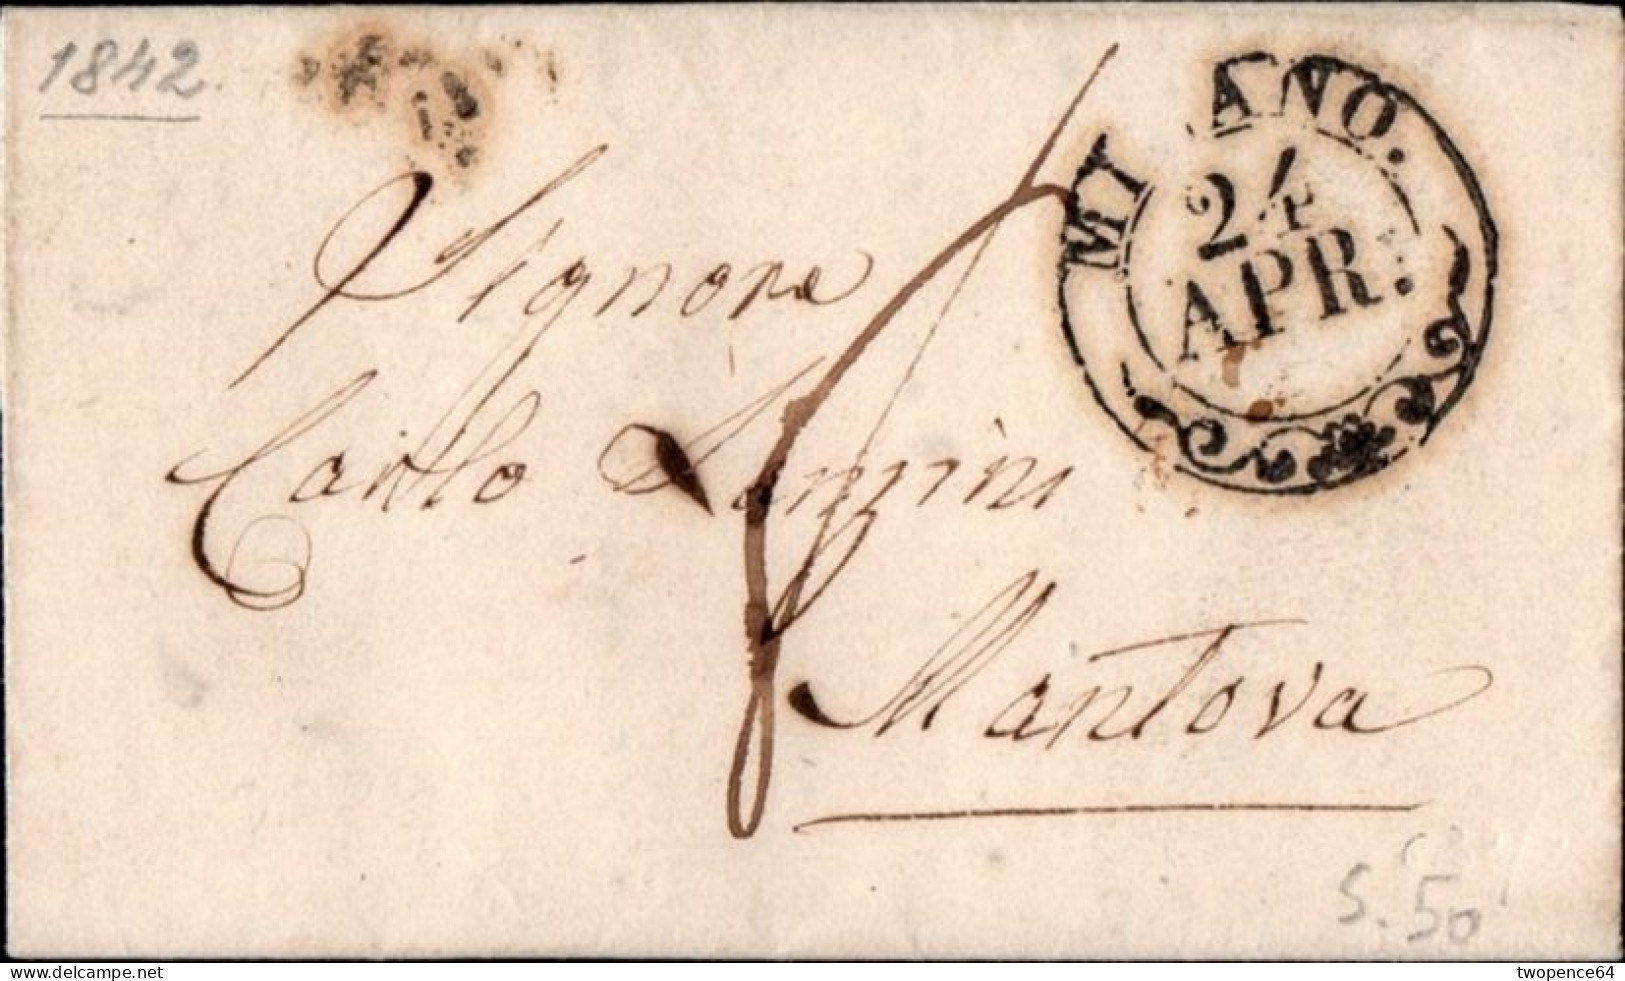 1842.
MILANO.
24
APR.
Signore
Carlo
Mantova
S. 50
delcampe.net
twopence64